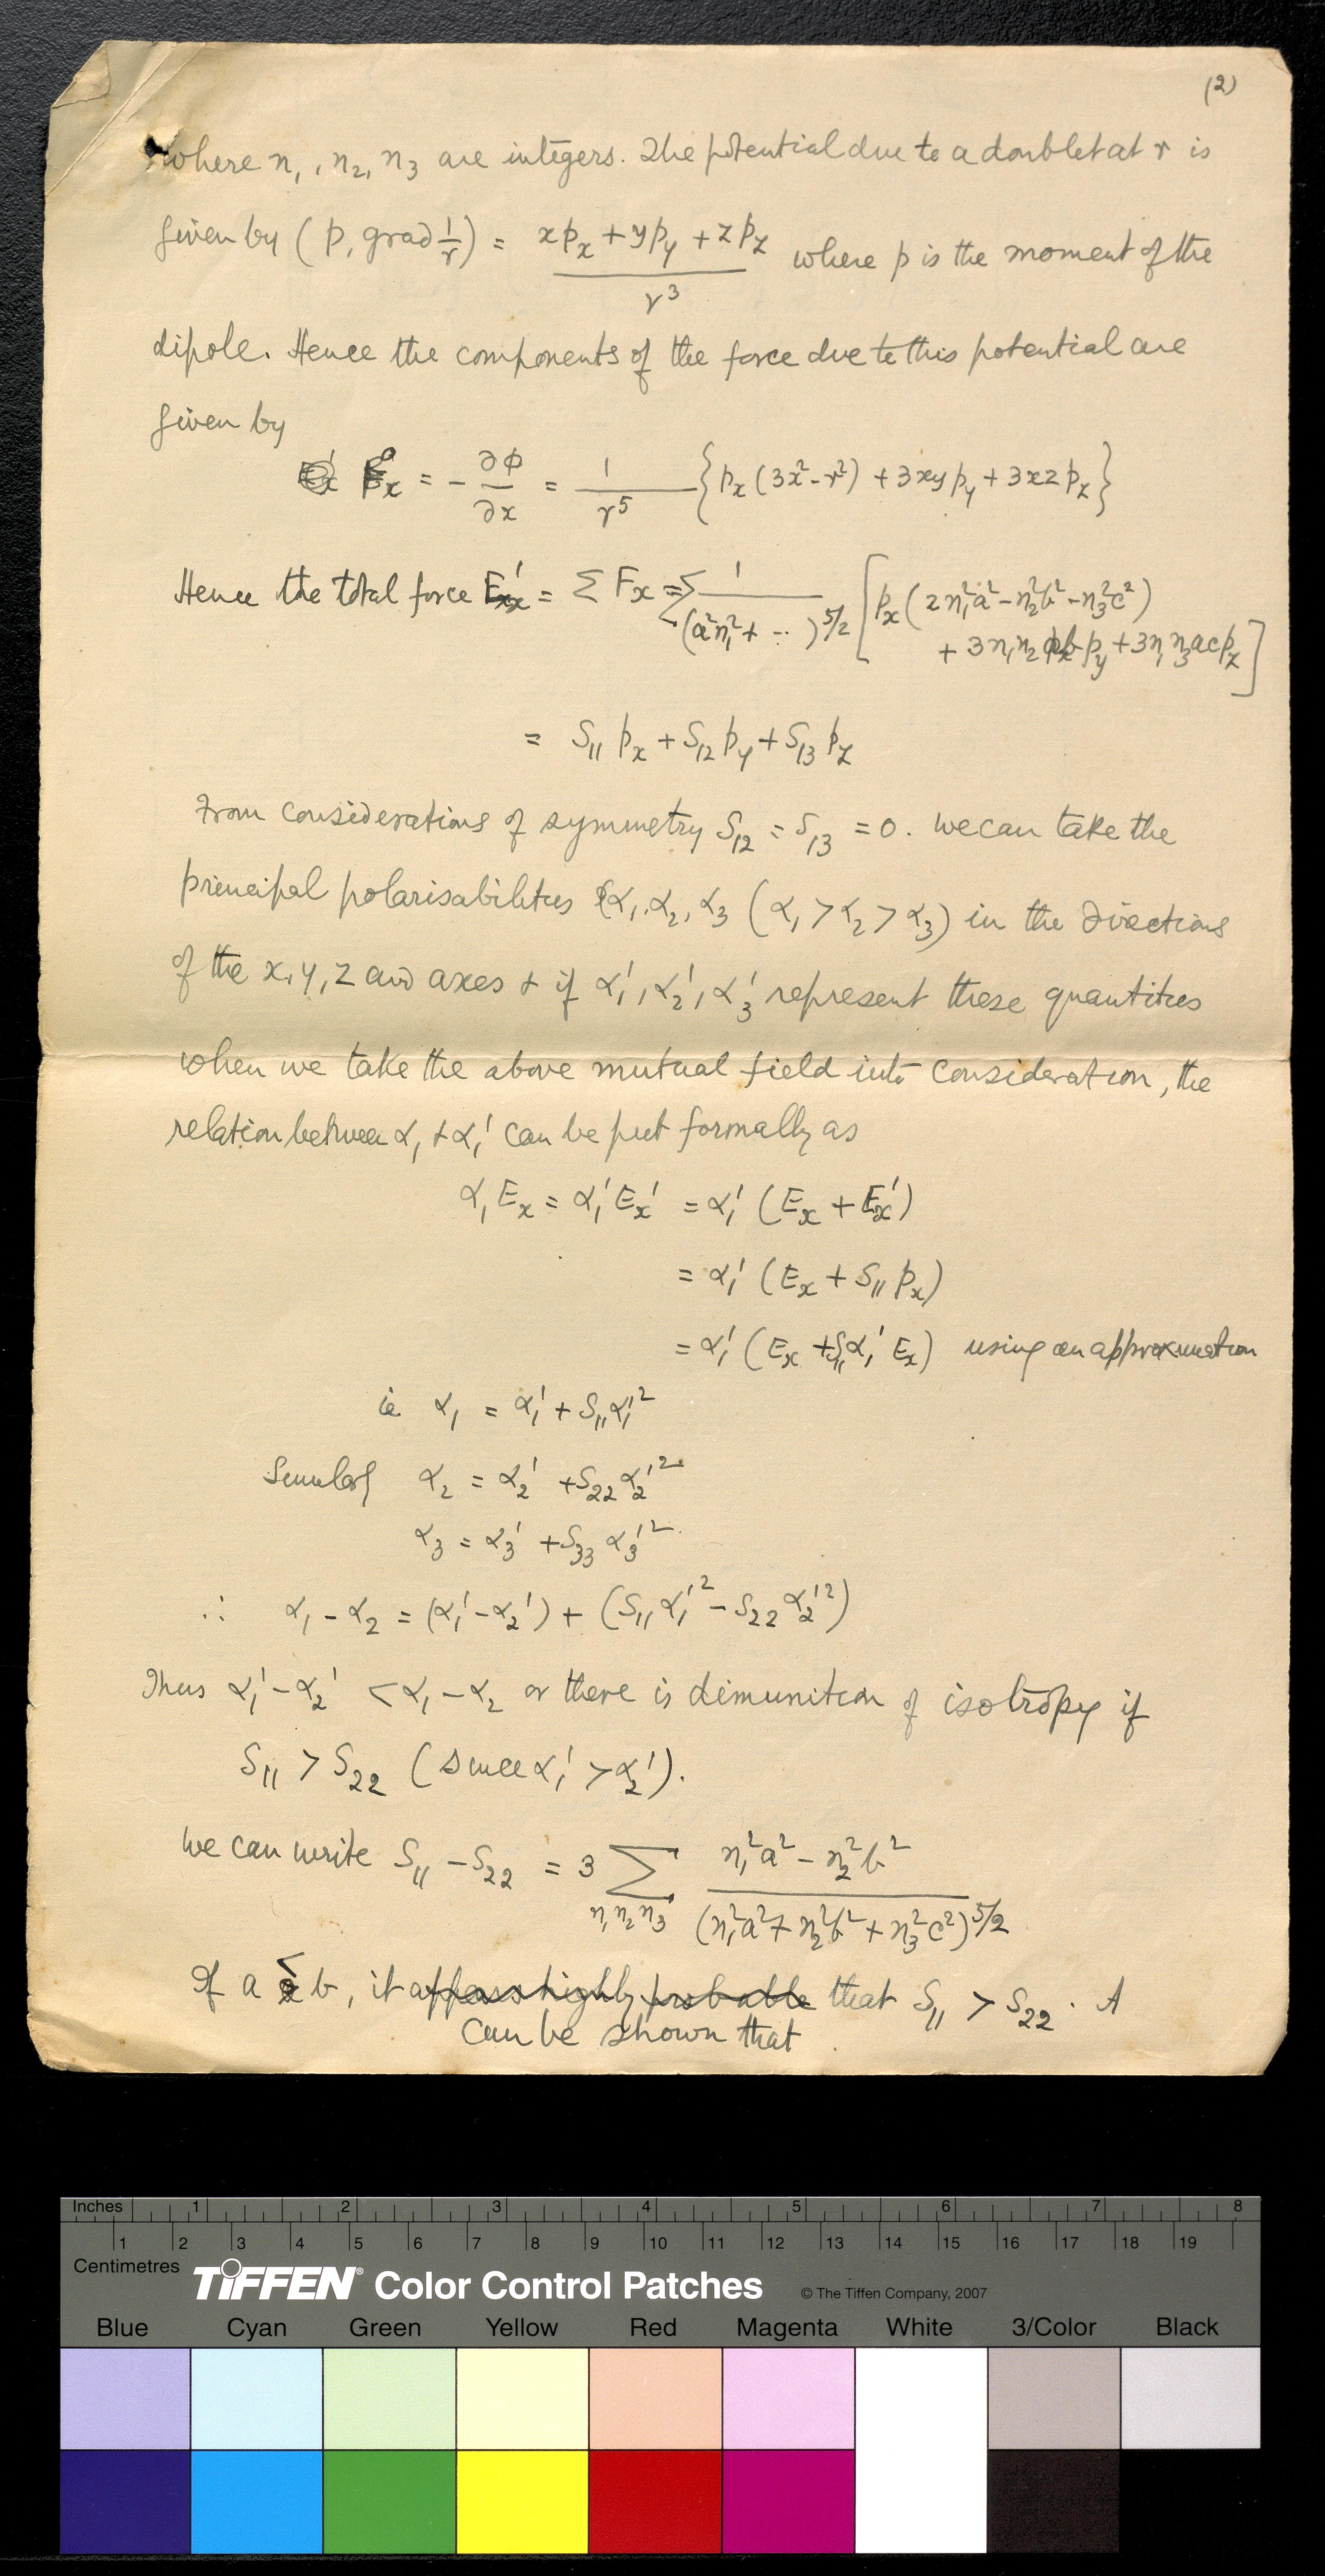 (2)
where n₁, n₂, n₃ are integers. The potential due to a doublet at r is
given by (p, grad 1/r) = (x pₓ + y p_y + z p_z) / r³ where p is the moment of the
dipole. Hence the components of the force due to this potential are
given by
Fₓ = - ∂φ/∂x = 1/r⁵ {pₓ (3x² - r²) + 3xy p_y + 3xz p_z}
Hence the total force Eₓ' = Σ Fₓ = Σ 1/(a²n₁² + --)^5/2 [pₓ (2n₁²a² - n₂²b² - n₃²c²)
+ 3n₁n₂ab p_y + 3n₁n₃ac p_z]
= S₁₁ pₓ + S₁₂ p_y + S₁₃ p_z
From considerations of symmetry S₁₂ = S₁₃ = 0. We can take the
principal polarisabilities α₁, α₂, α₃ (α₁ > α₂ > α₃) in the directions
of the x, y, z and axes + if α₁', α₂', α₃' represent these quantities
when we take the above mutual field into consideration, the
relation between α₁ + α₁' can be put formally as
α₁Eₓ = α₁'Eₓ' = α₁' (Eₓ + Eₓ')
= α₁' (Eₓ + S₁₁ pₓ)
= α₁' (Eₓ + S₁₁α₁' Eₓ) using an approximation
ie α₁ = α₁' + S₁₁α₁'²
Similarly α₂ = α₂' + S₂₂α₂'²
α₃ = α₃' + S₃₃ α₃'²
∴ α₁ - α₂ = (α₁' - α₂') + (S₁₁α₁'² - S₂₂α₂'²)
Thus α₁' - α₂' < α₁ - α₂ or there is dimunition of isotropy if
S₁₁ > S₂₂ (since α₁' > α₂').
We can write S₁₁ - S₂₂ = 3 Σ n₁n₂n₃ (n₁²a² - n₂²b²) / (n₁²a² + n₂²b² + n₃²c²)^5/2
If a < b, it appears highly probable that S₁₁ > S₂₂. A
can be shown that
Inches 1 2 3 4 5 6 7 8
1 2 3 4 5 6 7 8 9 10 11 12 13 14 15 16 17 18 19
Centimetres
TIFFEN® Color Control Patches © The Tiffen Company, 2007
Blue Cyan Green Yellow Red Magenta White 3/Color Black